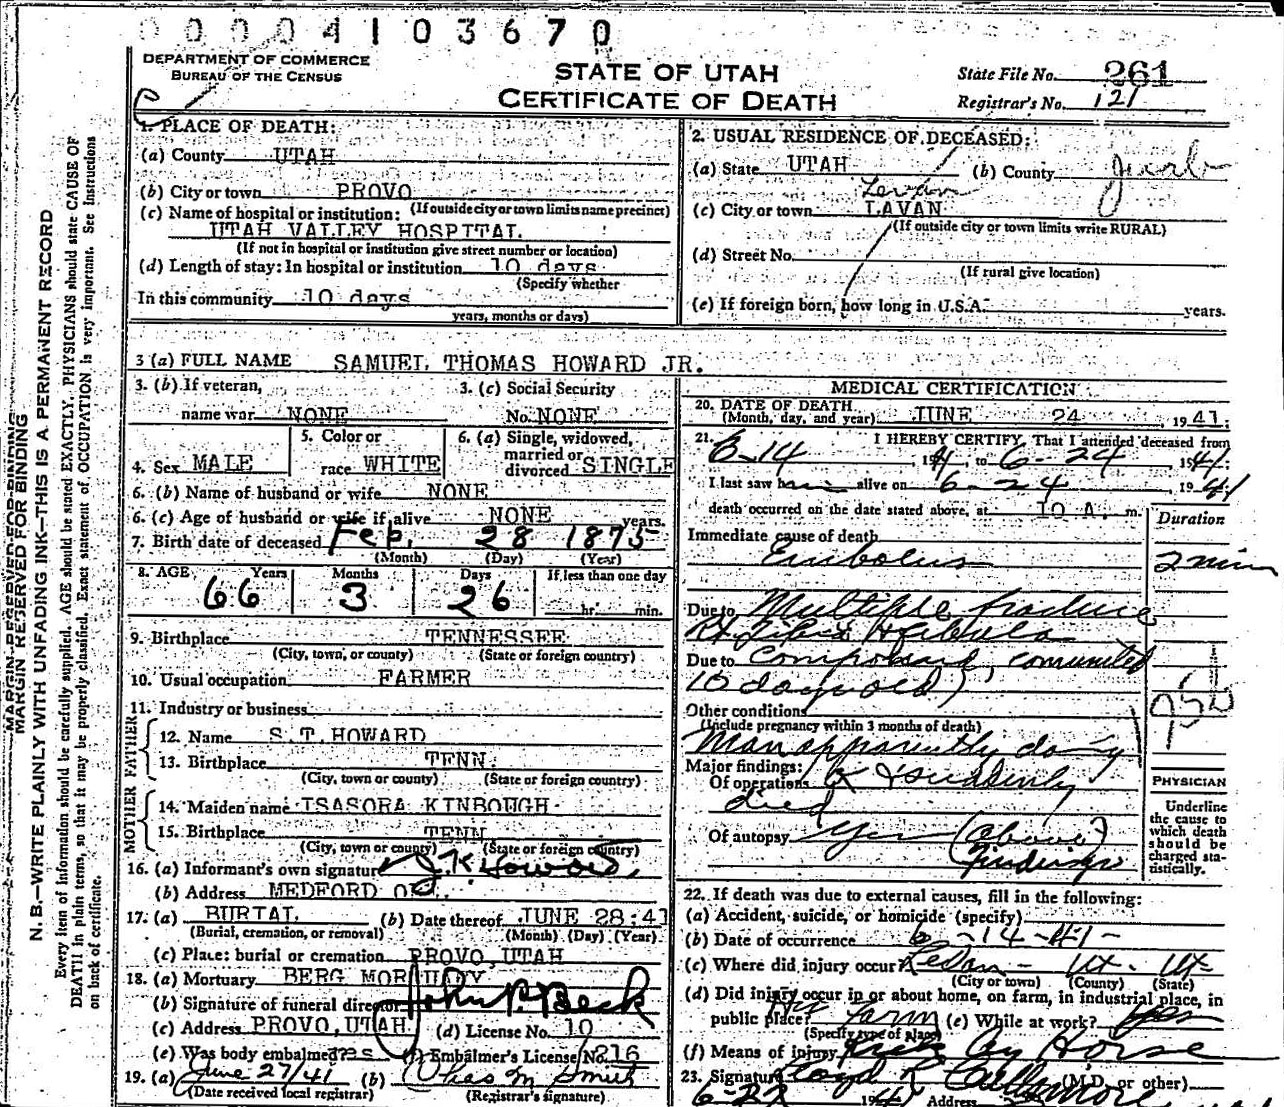 00004103670
DEPARTMENT OF COMMERCE
BUREAU OF THE CENSUS
STATE OF UTAH
CERTIFICATE OF DEATH
State File No. 261
Registrar's No. 121
1. PLACE OF DEATH:
(a) County UTAH
(b) City or town PROVO
(If outside city or town limits name precinct)
(c) Name of hospital or institution:
UTAH VALLEY HOSPITAL
(If not in hospital or institution give street number or location)
(d) Length of stay: In hospital or institution 10 days
(Specify whether
In this community 10 days
years, months or days)
2. USUAL RESIDENCE OF DECEASED:
(a) State UTAH (b) County Juab
Levan
(c) City or town LAVAN
(If outside city or town limits write RURAL)
(d) Street No.
(If rural give location)
(e) If foreign born, how long in U.S.A. years.
3 (a) FULL NAME SAMUEL THOMAS HOWARD JR.
3. (b) If veteran,
name war NONE
3. (c) Social Security
No. NONE
4. Sex MALE
5. Color or
race WHITE
6. (a) Single, widowed,
married or
divorced SINGLE
6. (b) Name of husband or wife NONE
6. (c) Age of husband or wife if alive NONE years.
7. Birth date of deceased Feb. 28 1875
(Month) (Day) (Year)
8. AGE Years Months Days If less than one day
66 3 26 hr. min.
9. Birthplace TENNESSEE
(City, town, or county) (State or foreign country)
10. Usual occupation FARMER
11. Industry or business
FATHER
12. Name S.T. HOWARD
13. Birthplace TENN.
(City, town or county) (State or foreign country)
MOTHER
14. Maiden name ISASORA KINBOUGH
15. Birthplace TENN
(City, town or county) (State or foreign country)
16. (a) Informant's own signature J.K. Howard,
(b) Address MEDFORD O
17. (a) BURIAL (b) Date thereof JUNE 28:41
(Burial, cremation, or removal) (Month) (Day) (Year)
(c) Place: burial or cremation PROVO, UTAH
18. (a) Mortuary BERG MORTUARY
(b) Signature of funeral director John P. Beck
(c) Address PROVO, UTAH (d) License No. 10
(e) Was body embalmed? yes (f) Embalmer's License No. 216
19. (a) June 27/41 (b) Chas M Smith
(Date received local registrar) (Registrar's signature)
MEDICAL CERTIFICATION
20. DATE OF DEATH
(Month, day, and year) JUNE 24, 1941.
21. I HEREBY CERTIFY, That I attended deceased from
6-14, 1941, to 6-24 1941.
I last saw him alive on 6-24 1941
death occurred on the date stated above, at 10 A. m.
Duration
Immediate cause of death
Embolus 2 min
Due to Multiple fracture
Rt. Tibia & fibula
Due to Compound, comunited
10 days old)
Other conditions
(Include pregnancy within 3 months of death)
Man apparently doing
Major findings:
Of operations OK & suddenly
died
Of autopsy Yes (above)
Findings
PHYSICIAN
Underline
the cause to
which death
should be
charged sta-
tistically.
22. If death was due to external causes, fill in the following:
(a) Accident, suicide, or homicide (specify)
(b) Date of occurrence 6-14-41-
(c) Where did injury occur Levan - Ut - Ut
(City or town) (County) (State)
(d) Did injury occur in or about home, on farm, in industrial place, in
public place? farm (e) While at work? yes
(Specify type of place)
(f) Means of injury by Horse
23. Signature Cullimore (M.D. or other)
1941 Address
MARGIN RESERVED FOR BINDING
N. B.—WRITE PLAINLY WITH UNFADING INK—THIS IS A PERMANENT RECORD
Every item of information should be carefully supplied. AGE should be stated EXACTLY. PHYSICIANS should state CAUSE OF
DEATH in plain terms, so that it may be properly classified. Exact statement of OCCUPATION is very important. See Instructions
on back of certificate.